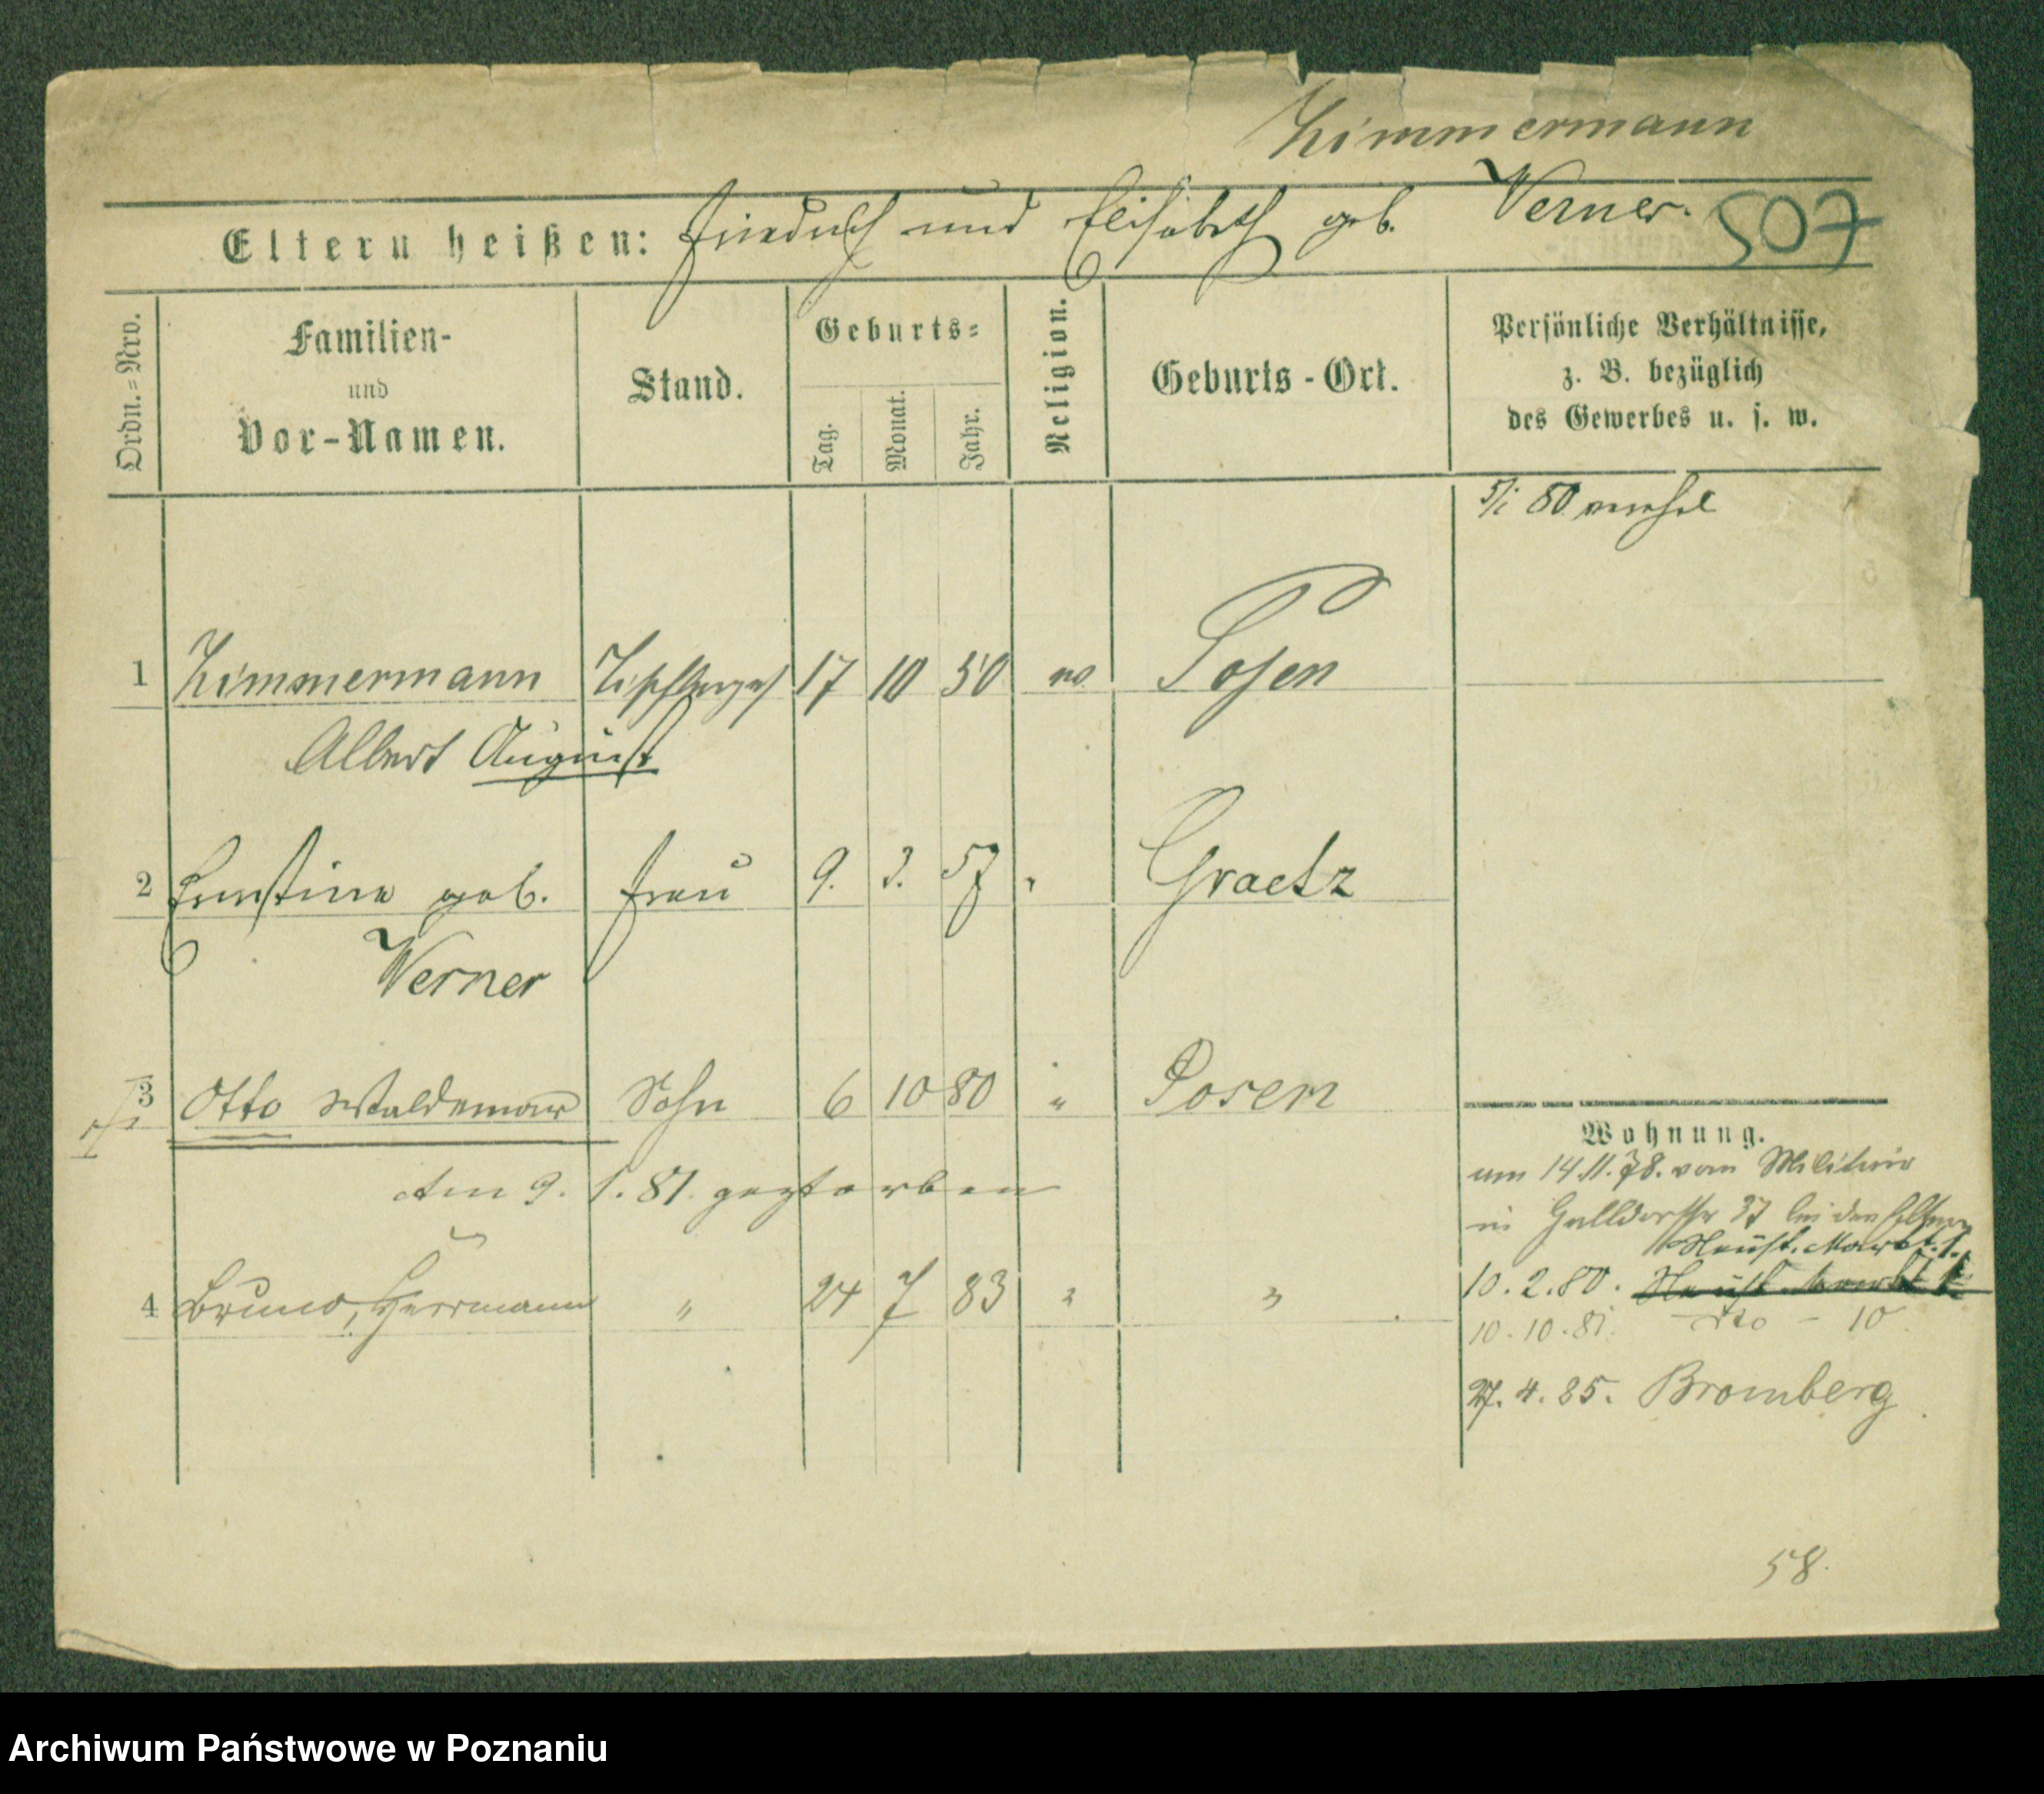 Zimmermann
Eltern heißen: Friedrich und Elisabeth geb. Werner.
507
Ordn.=Nro.
Familien-
und
Vor-Namen.
Stand.
Geburts=
Tag.
Monat.
Jahr.
Religion.
Geburts-Ort.
Persönliche Verhältnisse,
z. B. bezüglich
des Gewerbes u. s. w.
5/1 80 verehel
1 Zimmermann Tischlerges 17 10 50 ev Posen
Albert August
2 Ernstine geb. Frau 9. 3. 57 " Graetz
Werner
3 Otto Waldemar Sohn 6 10 80 " Posen
Am 9. 1. 81. gestorben
4 Bruno, Herrmann " 24 7 83 " "
Wohnung.
am 14.11.78. vom Militair
in 37 bei den Eltern
Neust. Markt. 1.
10.2.80. Neust. Markt
10.10.81. dto - 10
27.4.85. Bromberg
58.
Archiwum Państwowe w Poznaniu